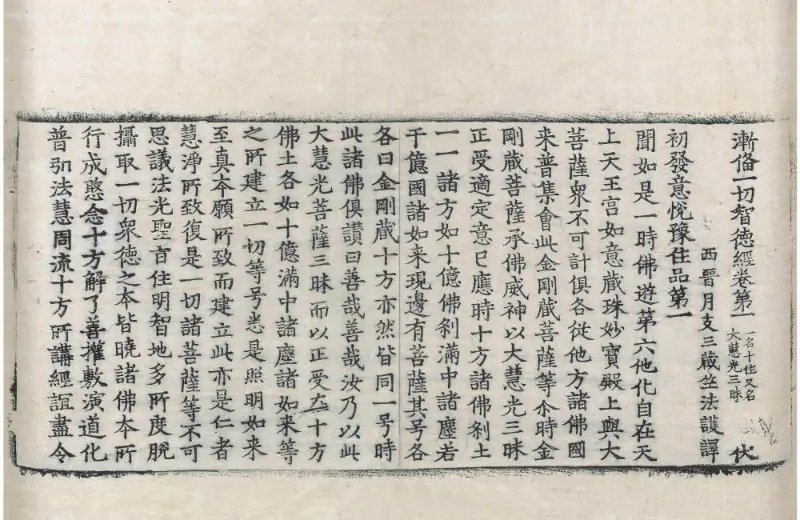 漸偹一切智德經卷第一 一名十住又名 大慧光三昧 伏
西晉月支三藏竺法護譯
初發意悅豫住品第一
聞如是一時佛遊第六他化自在天
上天王宮如意藏珠妙寶殿上與大
菩薩衆不可計俱各從他方諸佛國
来普集會此金剛藏菩薩等尒時金
剛藏菩薩承佛威神以大慧光三昧
正受適定意已應時十方諸佛刹土
一一諸方如十億佛刹滿中諸塵若
干億國諸如来現邊有菩薩其号各
各曰金剛藏十方亦然皆同一号時
此諸佛俱讃曰善哉善哉汝乃以此
大慧光菩薩三昧而以正受在十方
佛土各如十億滿中諸塵諸如来等
之所建立一切等号悉是照明如来
至真本願所致而建立此亦是仁者
慧淨所致復是一切諸菩薩等不可
思議法光聖旨住明智地多所度脫
攝取一切衆德之本皆曉諸佛本所
行成愍念十方解了善權敷演道化
普弘法慧周流十方所講經誼盡令